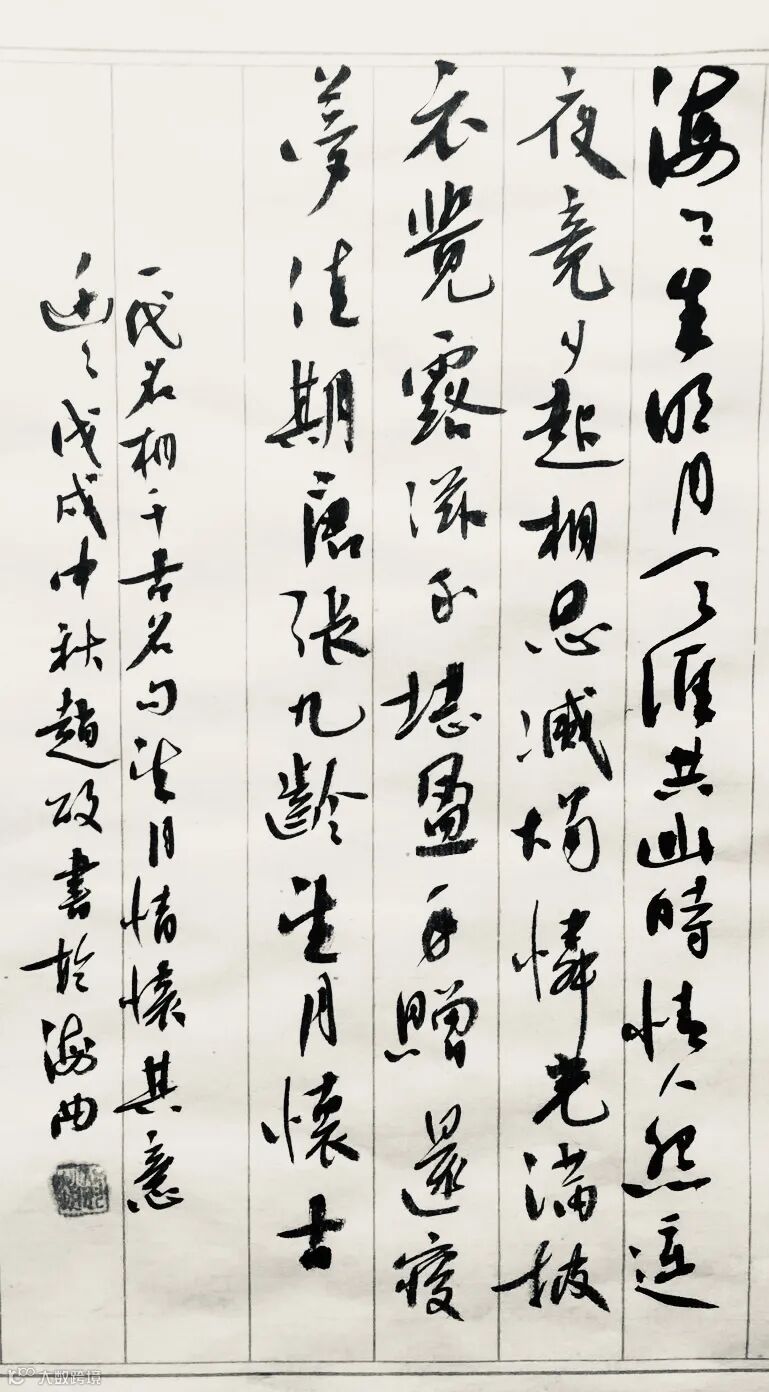 海上生明月天涯共此時情人怨遥
夜竟夕起相思滅燭憐光滿披
衣覺露滋不堪盈手贈還寝
夢佳期唐張九齡望月懷古
一代名相千古名句望月情懷其意
幽幽戊戌中秋趙政書於海曲
大数跨境